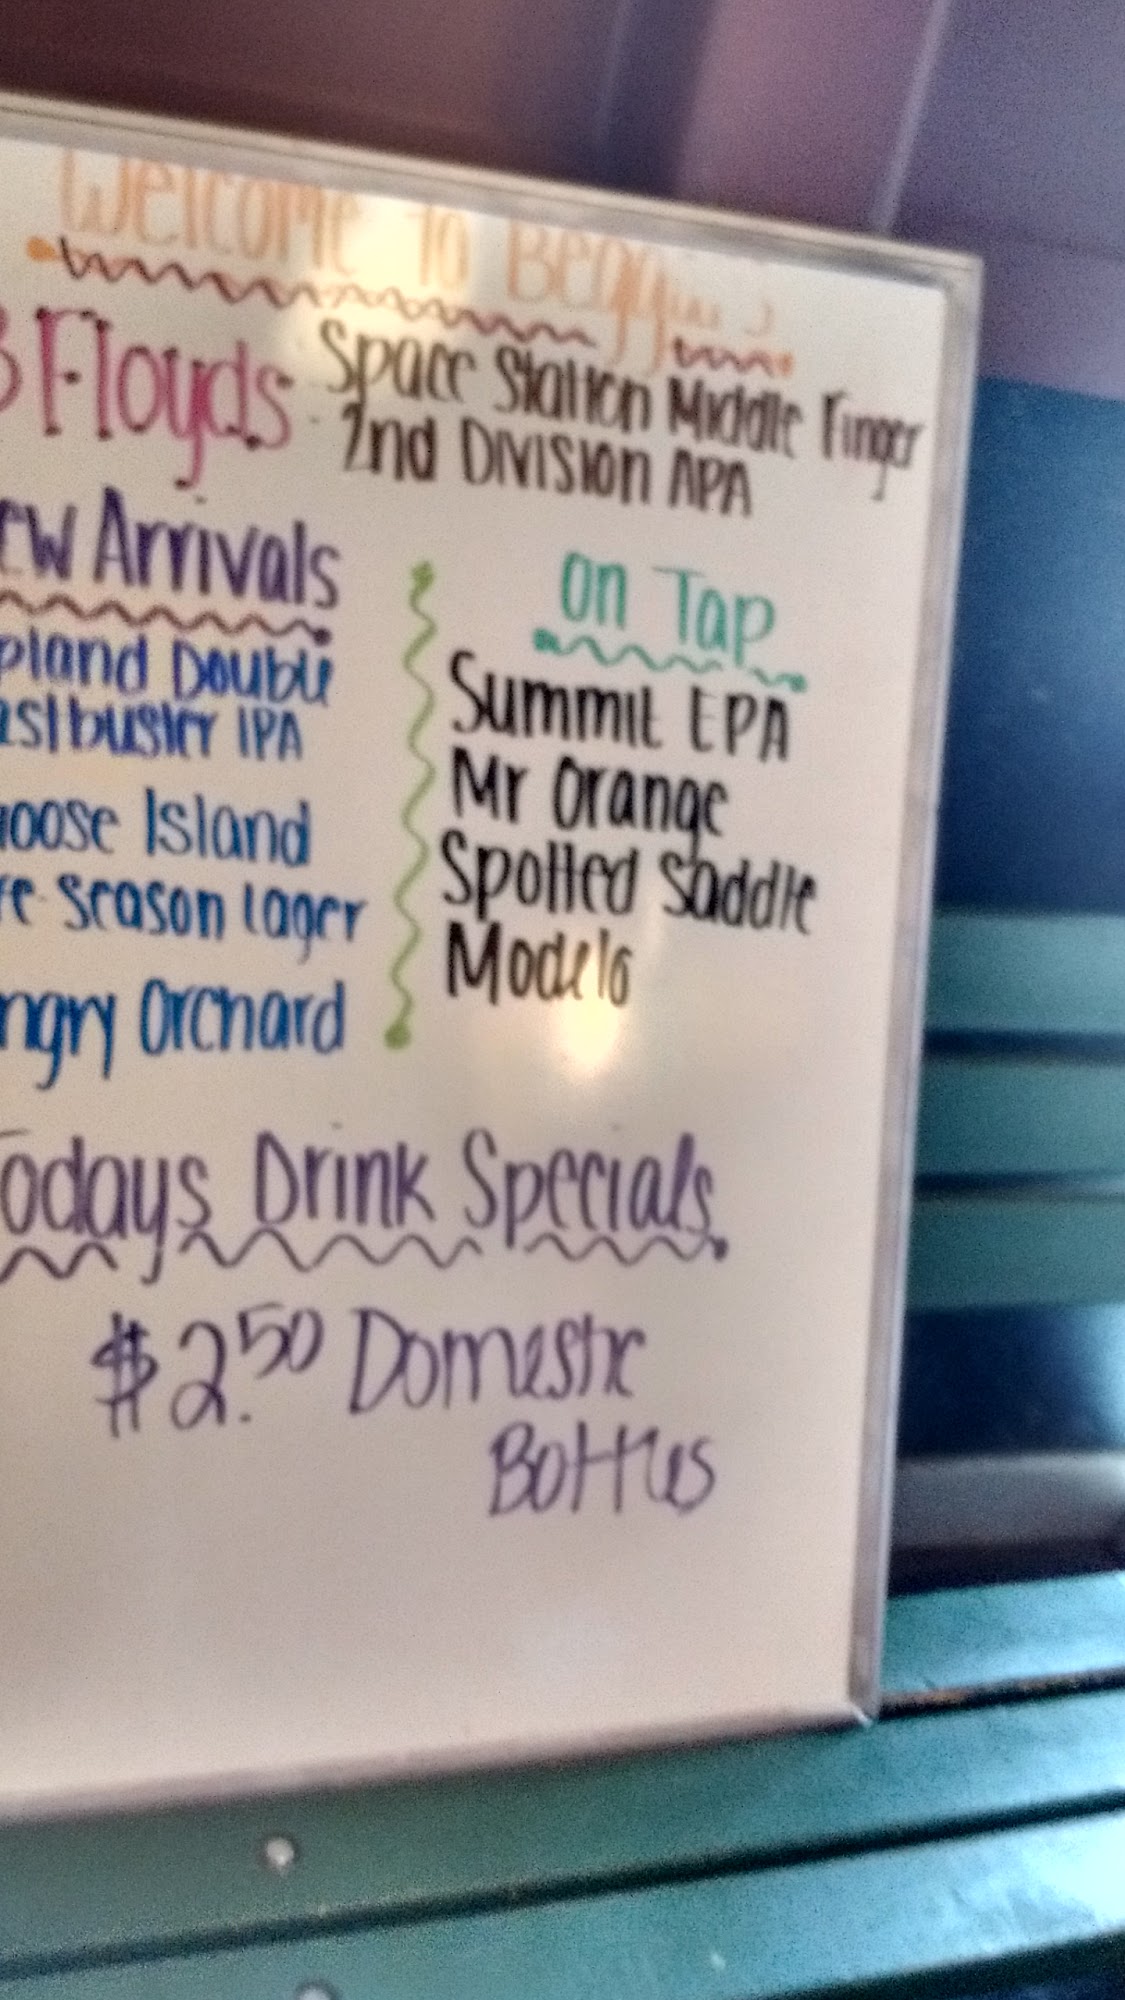 Welcome to
3 Floyds Space Station Middle Finger
2nd Division APA
ew Arrivals
pland Double
astbuster IPA
oose Island
re-Season Lager
ngry Orchard
on Tap
Summit EPA
Mr Orange
Spotted Saddle
Modelo
Todays Drink Specials
$2.50 Domestic
Bottles